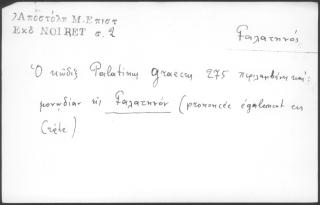 Ἀποστόλη Μ. Επιστ
Εκδ NOIRET σ. 2
Γαλατηνός
Ὁ κῶδιξ Palatinus graecus 275 περιλαμβάνει καί
μονῳδίαν εἰς Γαλατηνόν (prononcée également en
Crète)